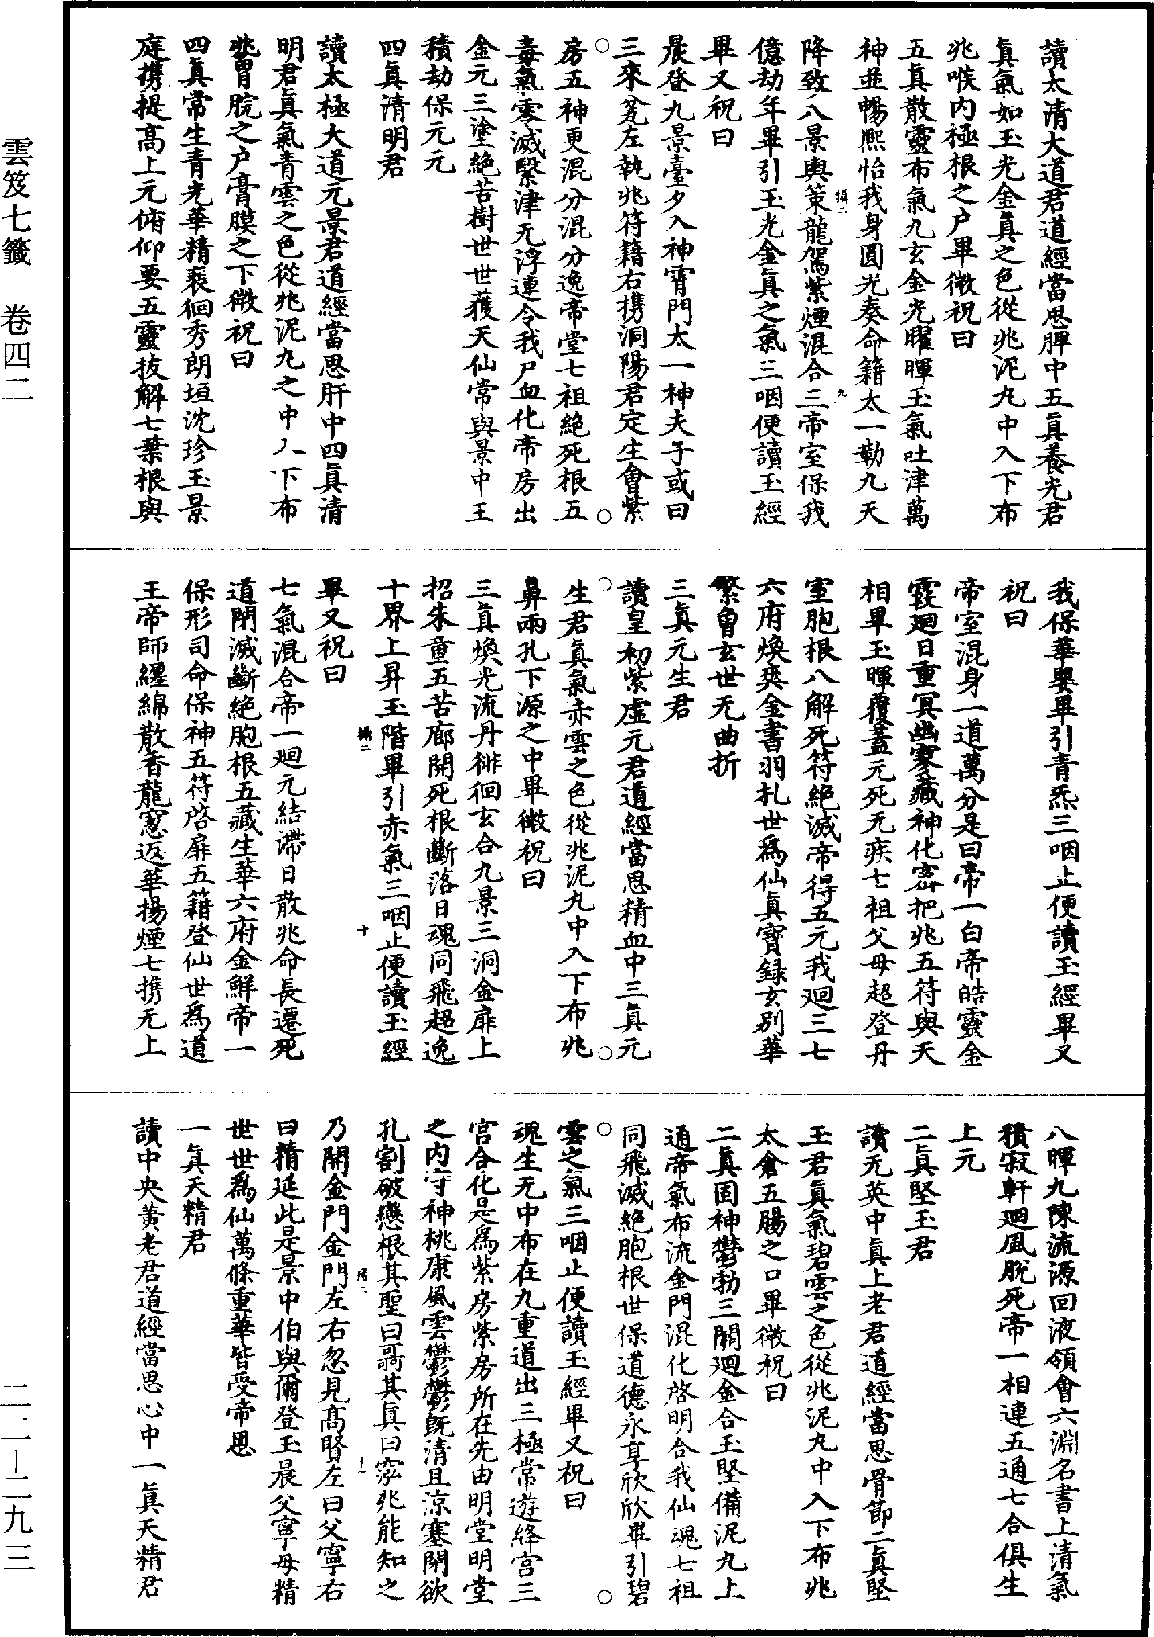 讀太清大道君道經當思脾中五真養光君
真氣如玉光金真之色從兆泥丸中入下布
兆喉內極根之户畢微祝曰
五真散靈布氣九玄金光曜暉玉氣吐津萬
神並暢熙怡我身圓光奏命籍太一勒九天
降致八景輿策龍駕紫煙混合三帝室保我
億劫年畢引玉光金真之氣三咽便讀玉經
畢又祝曰
晨登九景臺夕入神霄門太一神夫子或曰
三來㝹左執兆符籍右携洞陽君定生會紫
房五神更混分混分逸帝堂七祖絕死根五
毒氣零滅緊津无浮連令我尸血化帝房出
金元三塗絕苦樹世世獲天仙常與景中王
積劫保元元
四真清明君
讀太極大道元景君道經當思肝中四真清
明君真氣青雲之色從兆泥丸之中入下布
兆胃脘之户膏膜之下微祝曰
四真常生青光華精裵徊秀朗垣沈珍玉景
庭携提高上元俯仰要五靈拔解七葉根與
我保華嬰畢引青炁三咽止便讀玉經畢又
祝曰
帝室混身一道萬分是曰帝一白帝皓靈金
霞廻日重冥幽寥藏神化密把兆五符與天
相畢玉暉覆蓋元死无疾七祖父母超登丹
室胞根八解死符絕滅帝得五元我廻三七
六府煥爽金書羽札世爲仙真寶録玄别華
繁曾玄世无曲折
三真元生君
讀皇初紫虛元君道經當思精血中三真元
生君真氣赤雲之色從兆泥丸中入下布兆
鼻兩孔下源之中畢微祝曰
三真煥光流丹徘徊玄合九景三洞金扉上
招朱童五苦廊開死根斷落日魂同飛超逸
十界上昇玉階畢引赤氣三咽止便讀玉經
畢又祝曰
七氣混合帝一廻元結滯日散兆命長遷死
道閉滅斷絕胞根五藏生華六府金鮮帝一
保形司命保神五符啓扉五籍登仙世爲道
王帝師纏綿散香龍窻返華揚煙七携无上
八暉九陳流源回液領會六淵名書上清氣
積寂軒廻風脫死帝一相連五通七合俱生
上元
二真堅玉君
讀无英中真上老君道經當思骨節二真堅
玉君真氣碧雲之色從兆泥丸中入下布兆
太倉五腸之口畢微祝曰
二真固神鬱勃三關廻金合玉堅備泥丸上
通帝氣布流金門混化啓明合我仙魂七祖
同飛滅絕胞根世保道德永享欣欣畢引碧
雲之氣三咽止便讀玉經畢又祝曰
魂生无中布在九重道出三極常遊絳宫三
宫合化是爲紫房紫房所在先由明堂明堂
之内守神桃康風雲鬱鬱既清且涼塞開欲
孔割破戀根其聖曰哥其真曰窈兆能知之
乃開金門金門左右忽見高賢左曰父寧右
曰精延此是景中伯與爾登玉晨父寧母精
世世爲仙萬條重華皆受帝恩
一真天精君
讀中央黄老君道經當思心中一真天精君
雲笈七籤　卷四二
二二―二九三